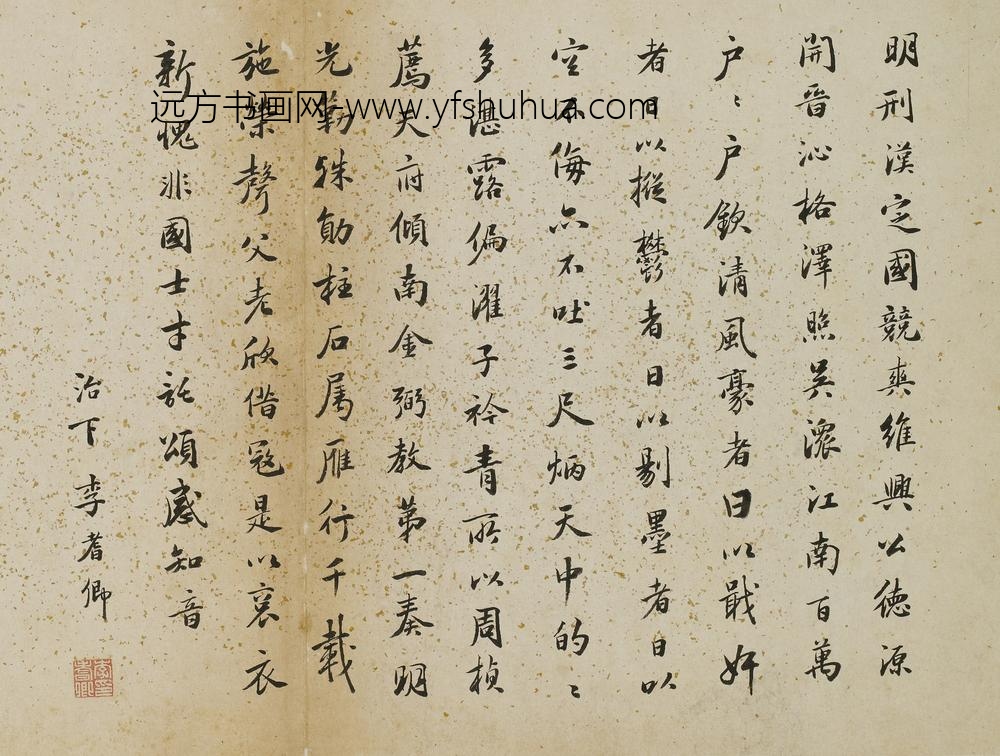 明刑漢定國競爽維興以德源
開晉沁格澤照吳濃江南百萬
户〻户欽清風豪者日以戢奸
者日以摧鬱者日以剔墨者日以
空不侮亦不吐三尺炳天中的〻
多湛露偏濯子衿青所以周楨
薦天府傾南金弼教第一奏明
光勒殊勛柱石属雁行千載
施榮聲父老欣借寇是以衮衣
新愧非國士才託頌感知音
治下李耆卿
李耆卿
远方书画网-www.yfshuhua.com